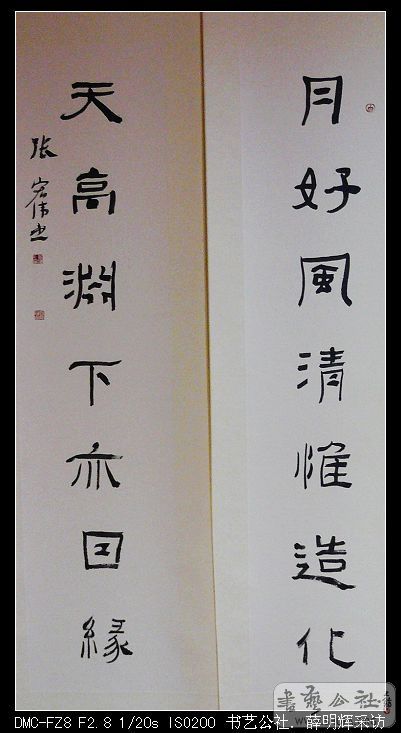 月好風清惟造化
天高淵下亦因緣
張宏偉書
書藝公社
DMC-FZ8 F2.8 1/20s ISO200 书艺公社．薛明辉采访